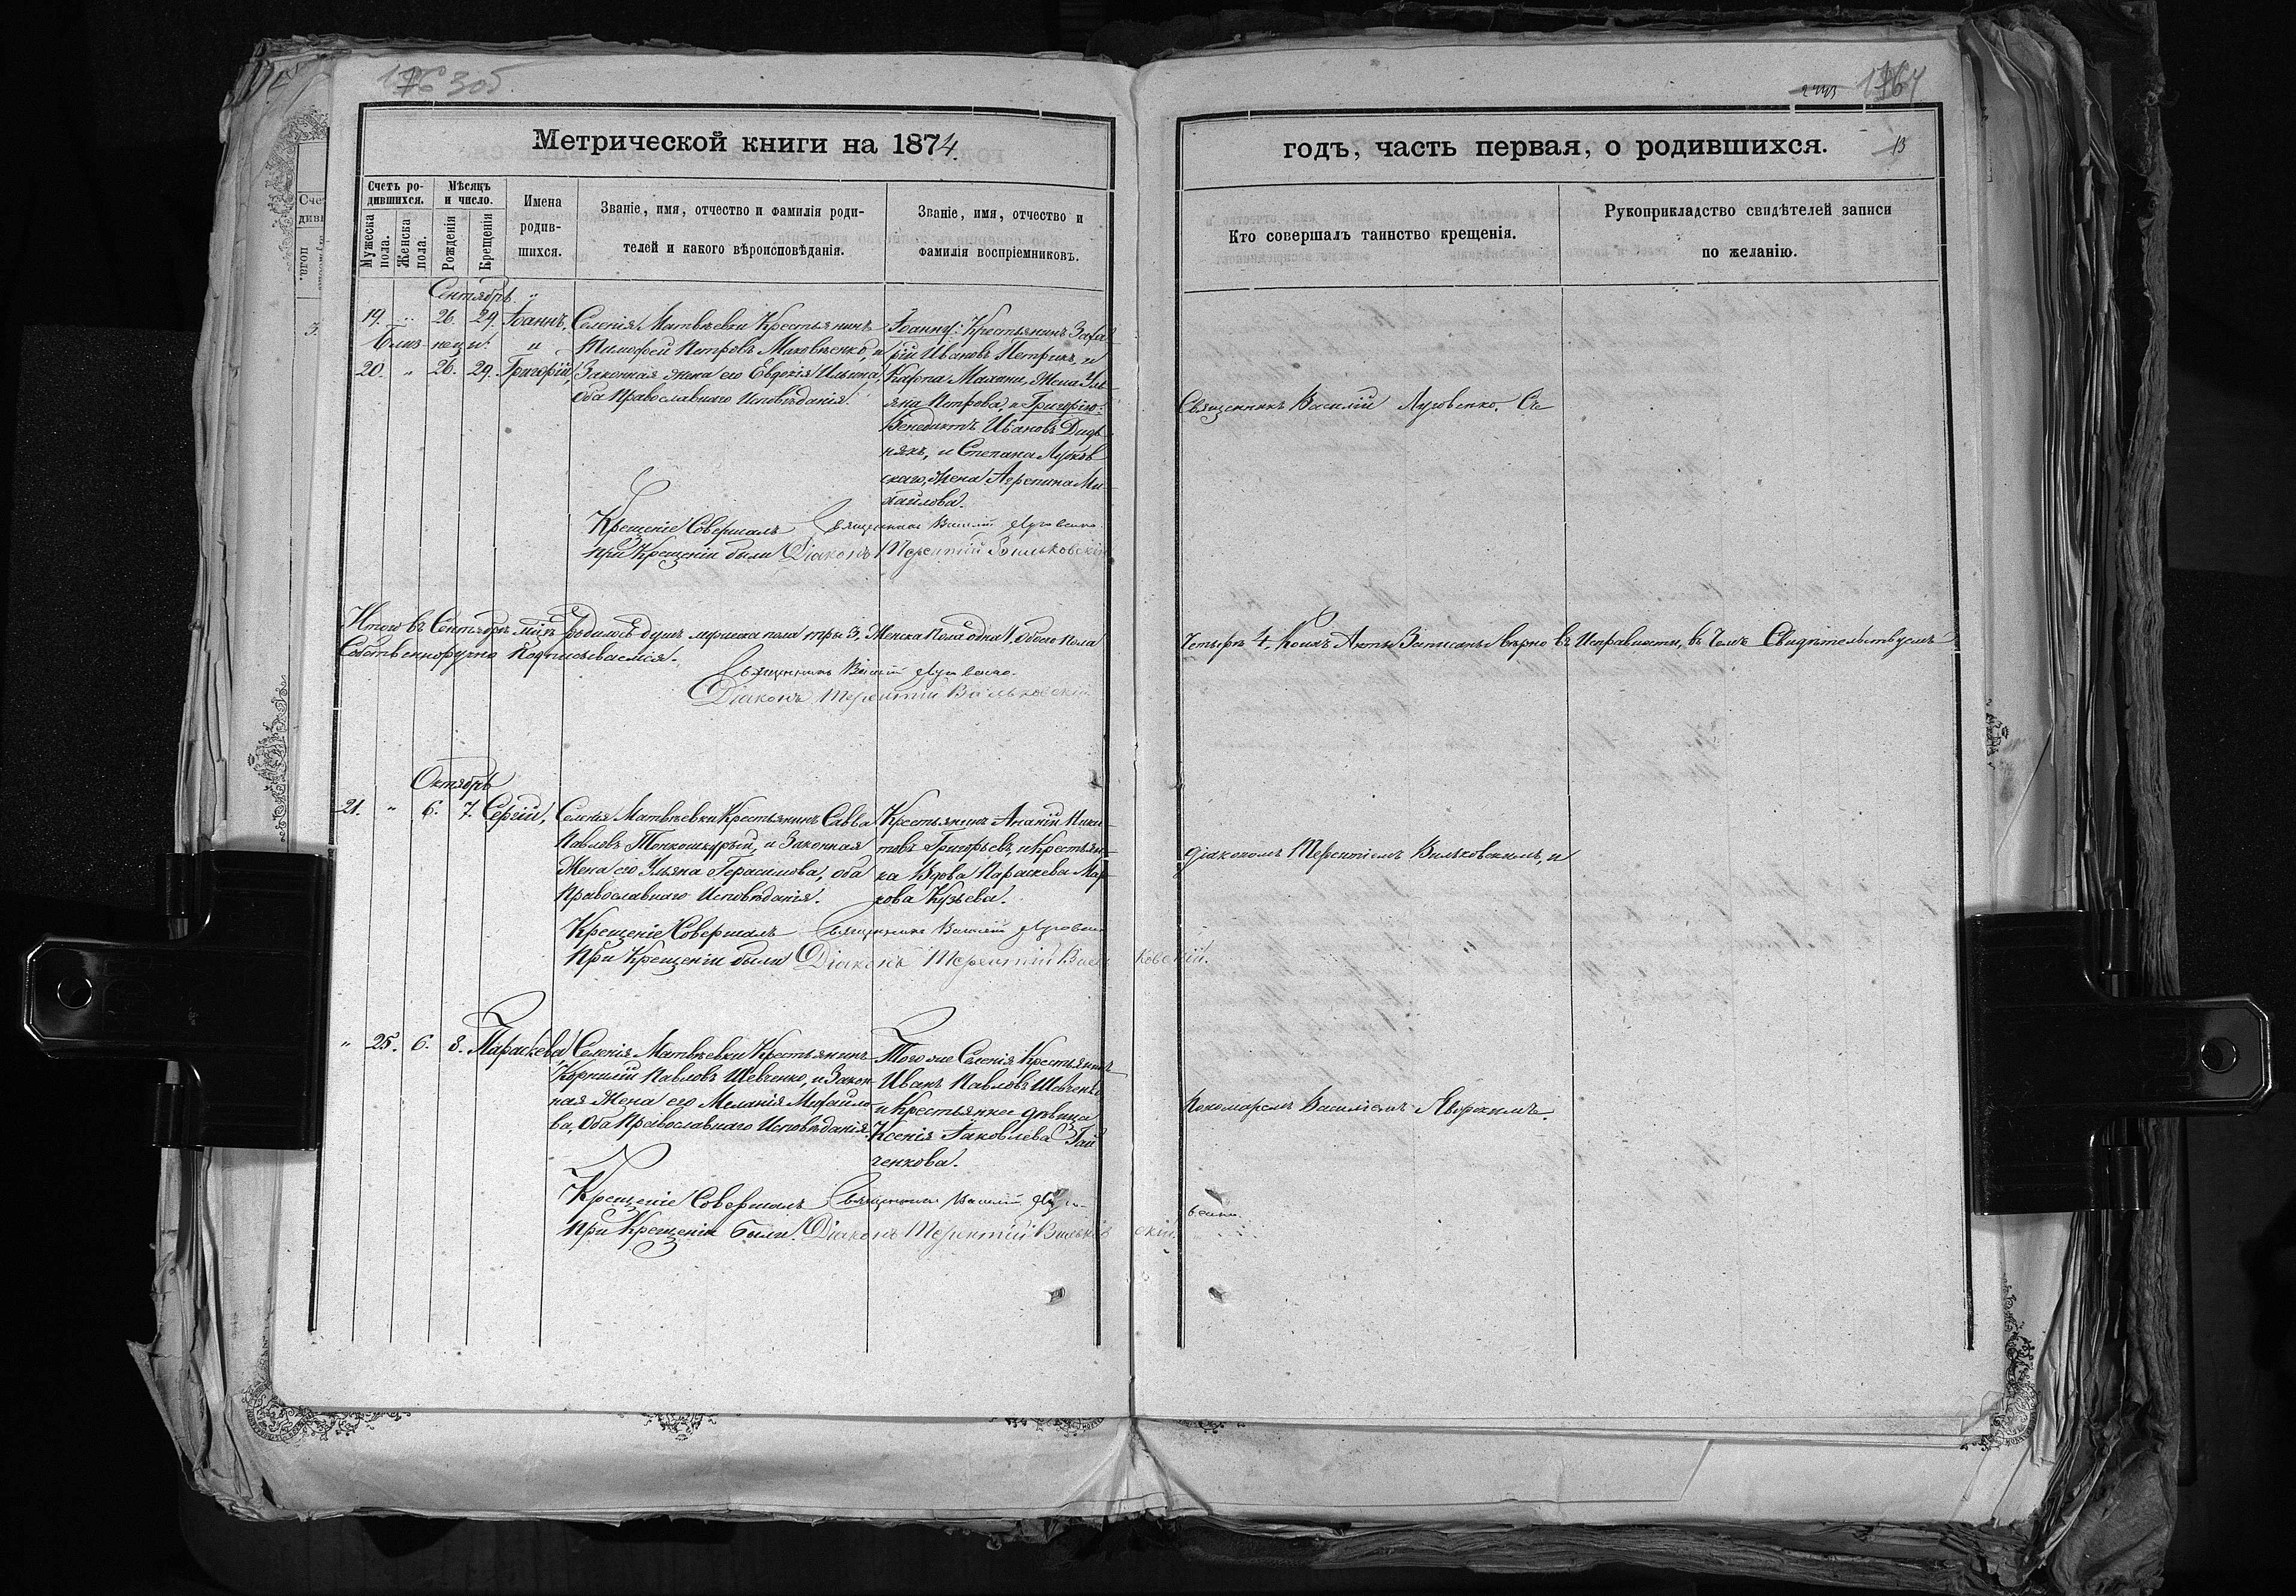 1763об.
Метрической книги на 1874.
Счетъ ро-
дившихся.
Мужеска
пола.
Женска
пола.
Мѣсяцъ
и число.
Рожденія
Крещенія
Имена
родив-
шихся.
Званіе, имя, отчество и фамилія роди-
телей и какого вѣроисповѣданія.
Званіе, имя, отчество и
фамилія воспріемниковъ.
Сентябрь.
19. " 26. 29. Іоаннъ,
близ- нецы: и
20. " 26. 29. Григорій,
Селенія Матвѣевки Крестьянинъ
Тимофей Петровъ Маковѣенко, и
Законная жена его Евдокія Ильина,
Оба Православнаго Исповѣданія.
Іоанну: Крестьянинъ Заха
рій Ивановъ Петрикъ, и
Карпа Махини, Жена Уль
яна Петрова, и Григорію:
Венедиктъ Ивановъ
и Степана
скаго, Жена Агрепина Ми-
хайлова.
Крещеніе Совершалъ Священникъ Василій Луговенко.
при Крещеніи были Діаконъ Терентій Вильковскій
Итого въ Сентябрѣ м-цѣ Родилось душъ мужеска пола три 3, Женска Пола одна 1, Обоего Пола
Собственноручно Подписываемся.
Священникъ Василій Луговенко.
Діаконъ Терентій Вильковскій
Октябрь
21. " 6. 7. Сергій,
Селенія Матвѣевки Крестьянинъ Савва
Павловъ Тонкошкурый, и Законная
Жена его Ульяна Герасимова, оба
Православнаго Исповѣданія.
Крестьянинъ Ананій Ники
товъ Григорьевъ, и Крестьян-
ка Вдова Параскева Мар
кова Кузьева.
Крещеніе Совершалъ Священникъ Василій Луговен
При Крещеніи были Діаконъ Терентій Вильковскій.
" 25. 6. 8. Параскева,
Селенія Матвѣевки Крестьянинъ
Корнилій Павловъ Шевченко, и Закон
ная Жена его Меланія Михайло
ва, Оба Православнаго Исповѣданія.
Того же Селенія Крестьянинъ
Иванъ Павловъ Шевченко
и Крестьянка дѣвица
Ксенія Іаковлева Гай
ченкова.
Крещеніе Совершалъ Священникъ Василій Луго-
При Крещеніи были Діаконъ Терентій Вильковскій.
1764
13
годъ, часть первая, о родившихся.
Кто совершалъ таинство крещенія.
Рукоприкладство свидѣтелей записи
по желанію.
Священникъ Василій Луговенко. Съ
Четыре 4, Коихъ Акты Записаны вѣрно въ Исправности, въ Чемъ Свидѣтельствуемъ
діакономъ Терентіемъ Вильковскимъ, и
Пономаремъ Василіемъ
венко.